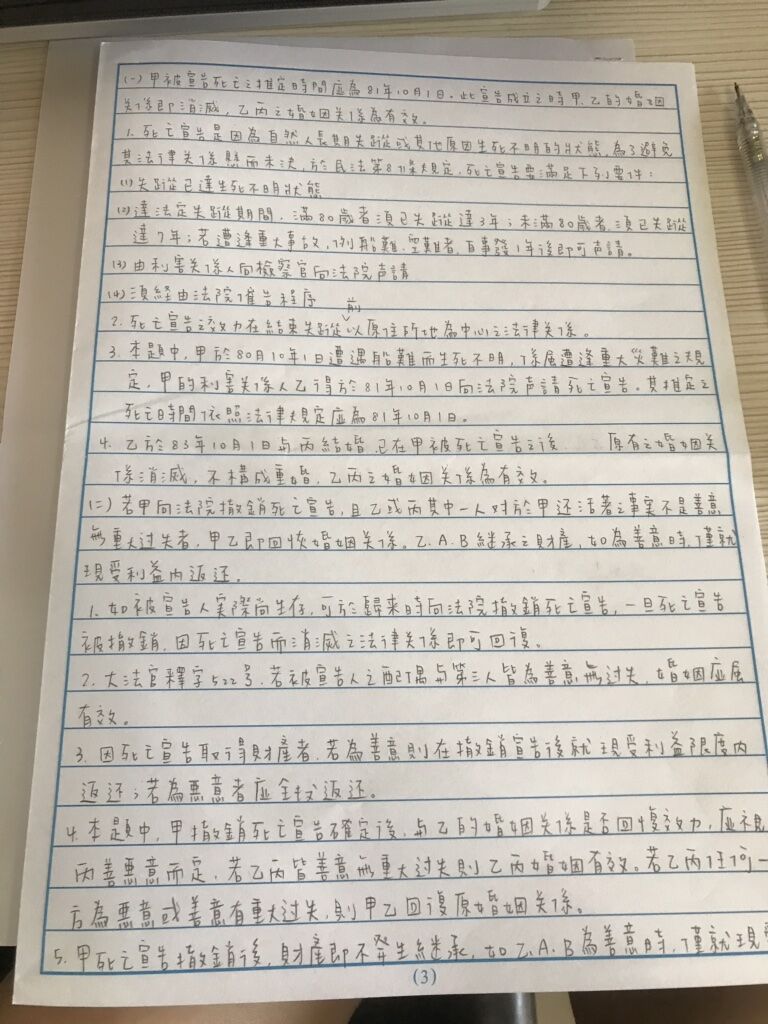 (一) 甲被宣告死亡之推定時間應為81年10月1日。此宣告成立之時甲、乙的婚姻
关係即消滅，乙丙之婚姻关係為有效。
1. 死亡宣告是因為自然人長期失蹤或其他原因生死不明的狀態，為了避免
其法律关係懸而未決，於民法第8條規定，死亡宣告要滿足下列要件：
(1) 失蹤從已達生死不明狀態
(2) 達法定失蹤期間，滿80歲者須已失蹤達3年；未滿80歲者，須已失蹤
達7年；若遭逢重大事故，例船難、空難者，自事發1年後即可声請。
(3) 由利害关係人向檢察官向法院声請
(4) 須経由法院催告程序
2. 死亡宣告之效力在結束失蹤前以原住所地為中心之法律关係。
3. 本題中，甲於80月10年1日遭遇船難而生死不明，係屬遭逢重大災難之規
定，甲的利害关係人乙得於81年10月1日向法院声請死亡宣告。其推定之
死亡時間依照法律規定應為81年10月1日。
4. 乙於83年10月1日与丙結婚，已在甲被死亡宣告之後 原有之婚姻关
係消滅，不構成重婚，乙丙之婚姻关係為有效。
(二) 若甲向法院撤銷死亡宣告，且乙或丙其中一人对於甲还活著之事实不是善意
無重大过失者，甲乙即回恢婚姻关係。乙、A、B継承之財產，如為善意時，僅就
現受利益內返还。
1. 如被宣告人实際尚生存，可於歸來時向法院撤銷死亡宣告，一旦死亡宣告
被撤銷，因死亡宣告而消滅之法律关係即可回復。
2. 大法官釋字522号，若被宣告人之配偶与第三人皆為善意無过失，婚姻应屬
有效。
3. 因死亡宣告取得財產者，若為善意則在撤銷宣告後就現受利益限度內
返还；若為悪意者应全数返还。
4. 本題中，甲撤銷死亡宣告確定後，与乙的婚姻关係是否回復效力，应視
丙善悪意而定，若乙丙皆善意無重大过失則乙丙婚姻有效。若乙丙任何一
方為悪意或善意有重大过失，則甲乙回復原婚姻关係。
5. 甲死亡宣告撤銷後，財產即不発生継承，如乙、A、B為善意時，僅就現受
(3)